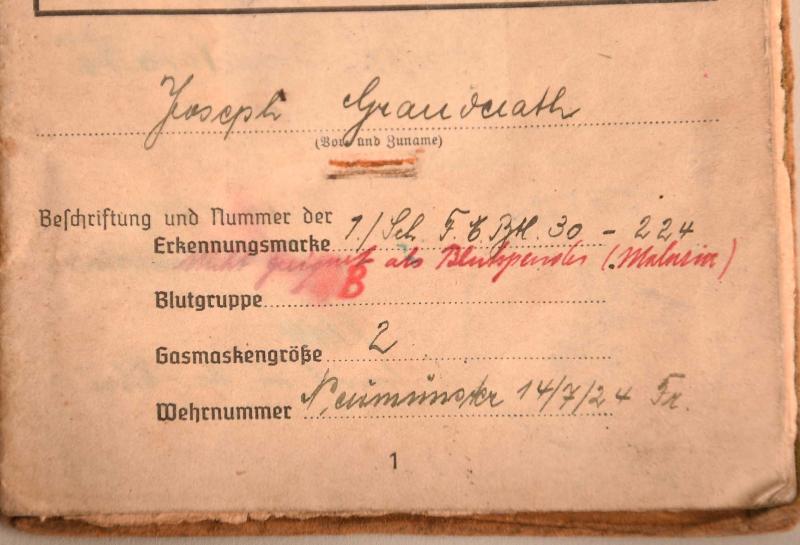 Joseph Grandrath
(Vor= und Zuname)
Beschriftung und Nummer der
Erkennungsmarke 1/Sch. F. E Btl. 30 - 224
nicht geeignet als Blutspender (Malaria)
Blutgruppe B
Gasmaskengröße 2
Wehrnummer Neumünster 14/7/24 Fr.
1